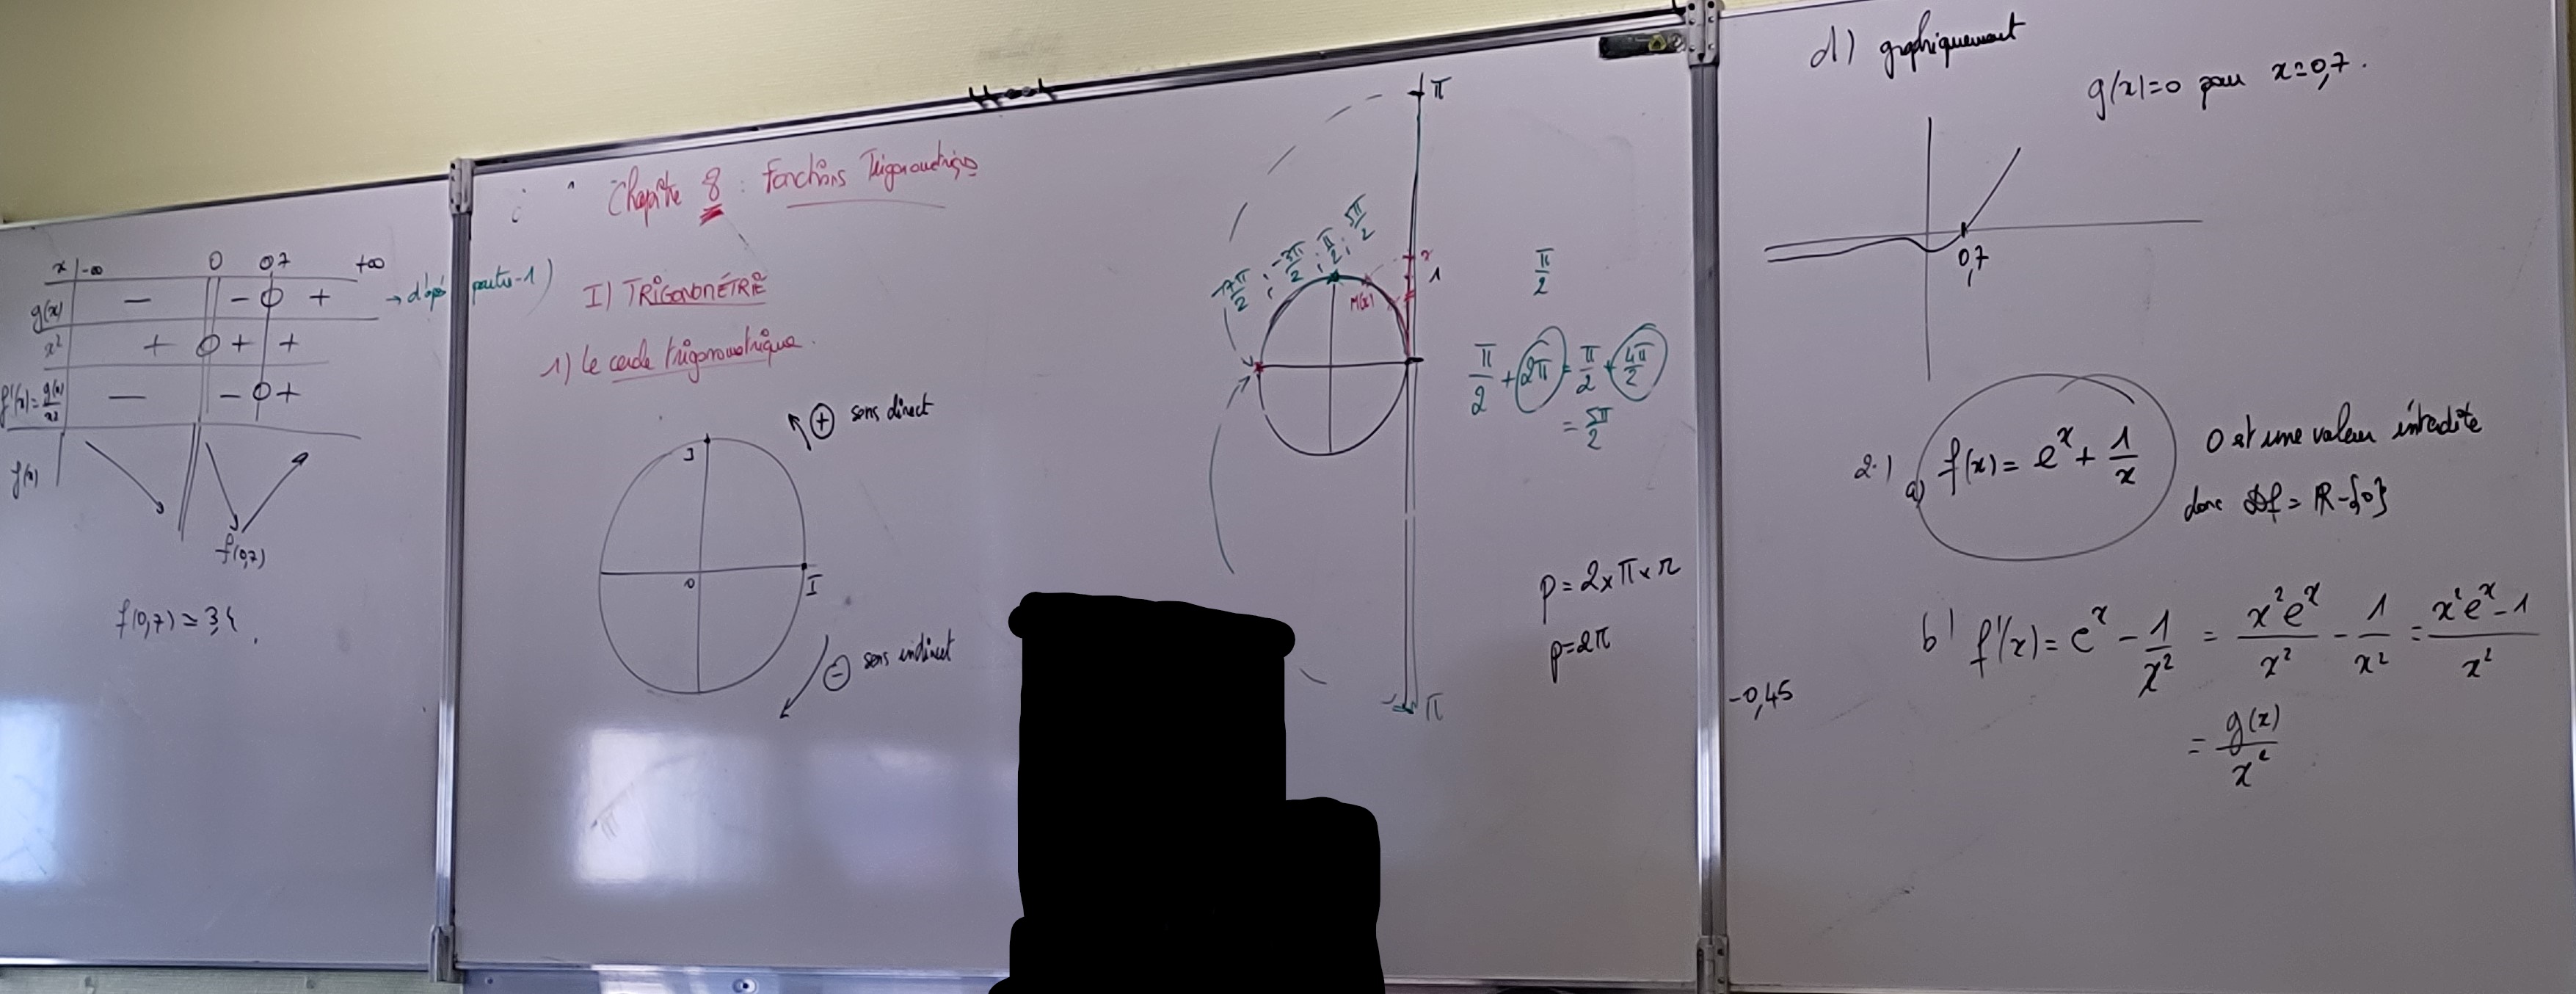 x | -∞ 0 0,7 +∞
g(x) - - 0 + → d'après partie 1)
x² + 0 + +
f'(x) = g(x)/x² - - 0 +
f(x)
f(0,7)
f(0,7) ≃ 3,4
Chapitre 8 : Fonctions Trigonométriques
I) TRIGONOMÉTRIE
1) Le cercle trigonométrique.
⊕ sens direct
J
O
I
⊖ sens indirect
π
-3π/2 ; π/2 ; 5π/2
x
1
M(x)
-π
π/2
π/2 + 2π = π/2 + 4π/2
= 5π/2
p = 2×π×r
p = 2π
d) graphiquement
g(x)=0 pour x≃0,7.
0,7
2.) a) f(x) = e^x + 1/x
0 est une valeur interdite
donc Df = ℝ-{0}
b) f'(x) = e^x - 1/x² = x²e^x/x² - 1/x² = x²e^x-1/x²
= g(x)/x²
-0,45